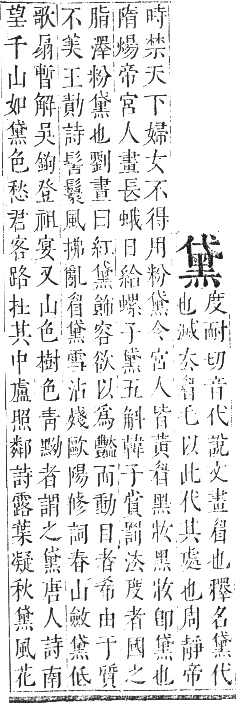 黛
度耐切音代說文畫眉也釋名黛代
也滅去眉毛以此代其處也周靜帝
時禁天下婦女不得用粉黛今宮人皆黃眉黑妝黑妝即黛也
隋煬帝宮人畫長蛾日給螺子黛五斛韓子賞罰法度者國之
脂澤粉黛也劉晝曰紅黛飾容欲以為豔而動目者希由于質
不美王勣詩髻鬟風拂亂眉黛雪沾殘歐陽修詞春山斂黛低
歌扇暫解吳鉤登祖宴又山色樹色青黝者謂之黛唐人詩南
望千山如黛色愁君客路在其中盧照鄰詩露葉凝秋黛風花